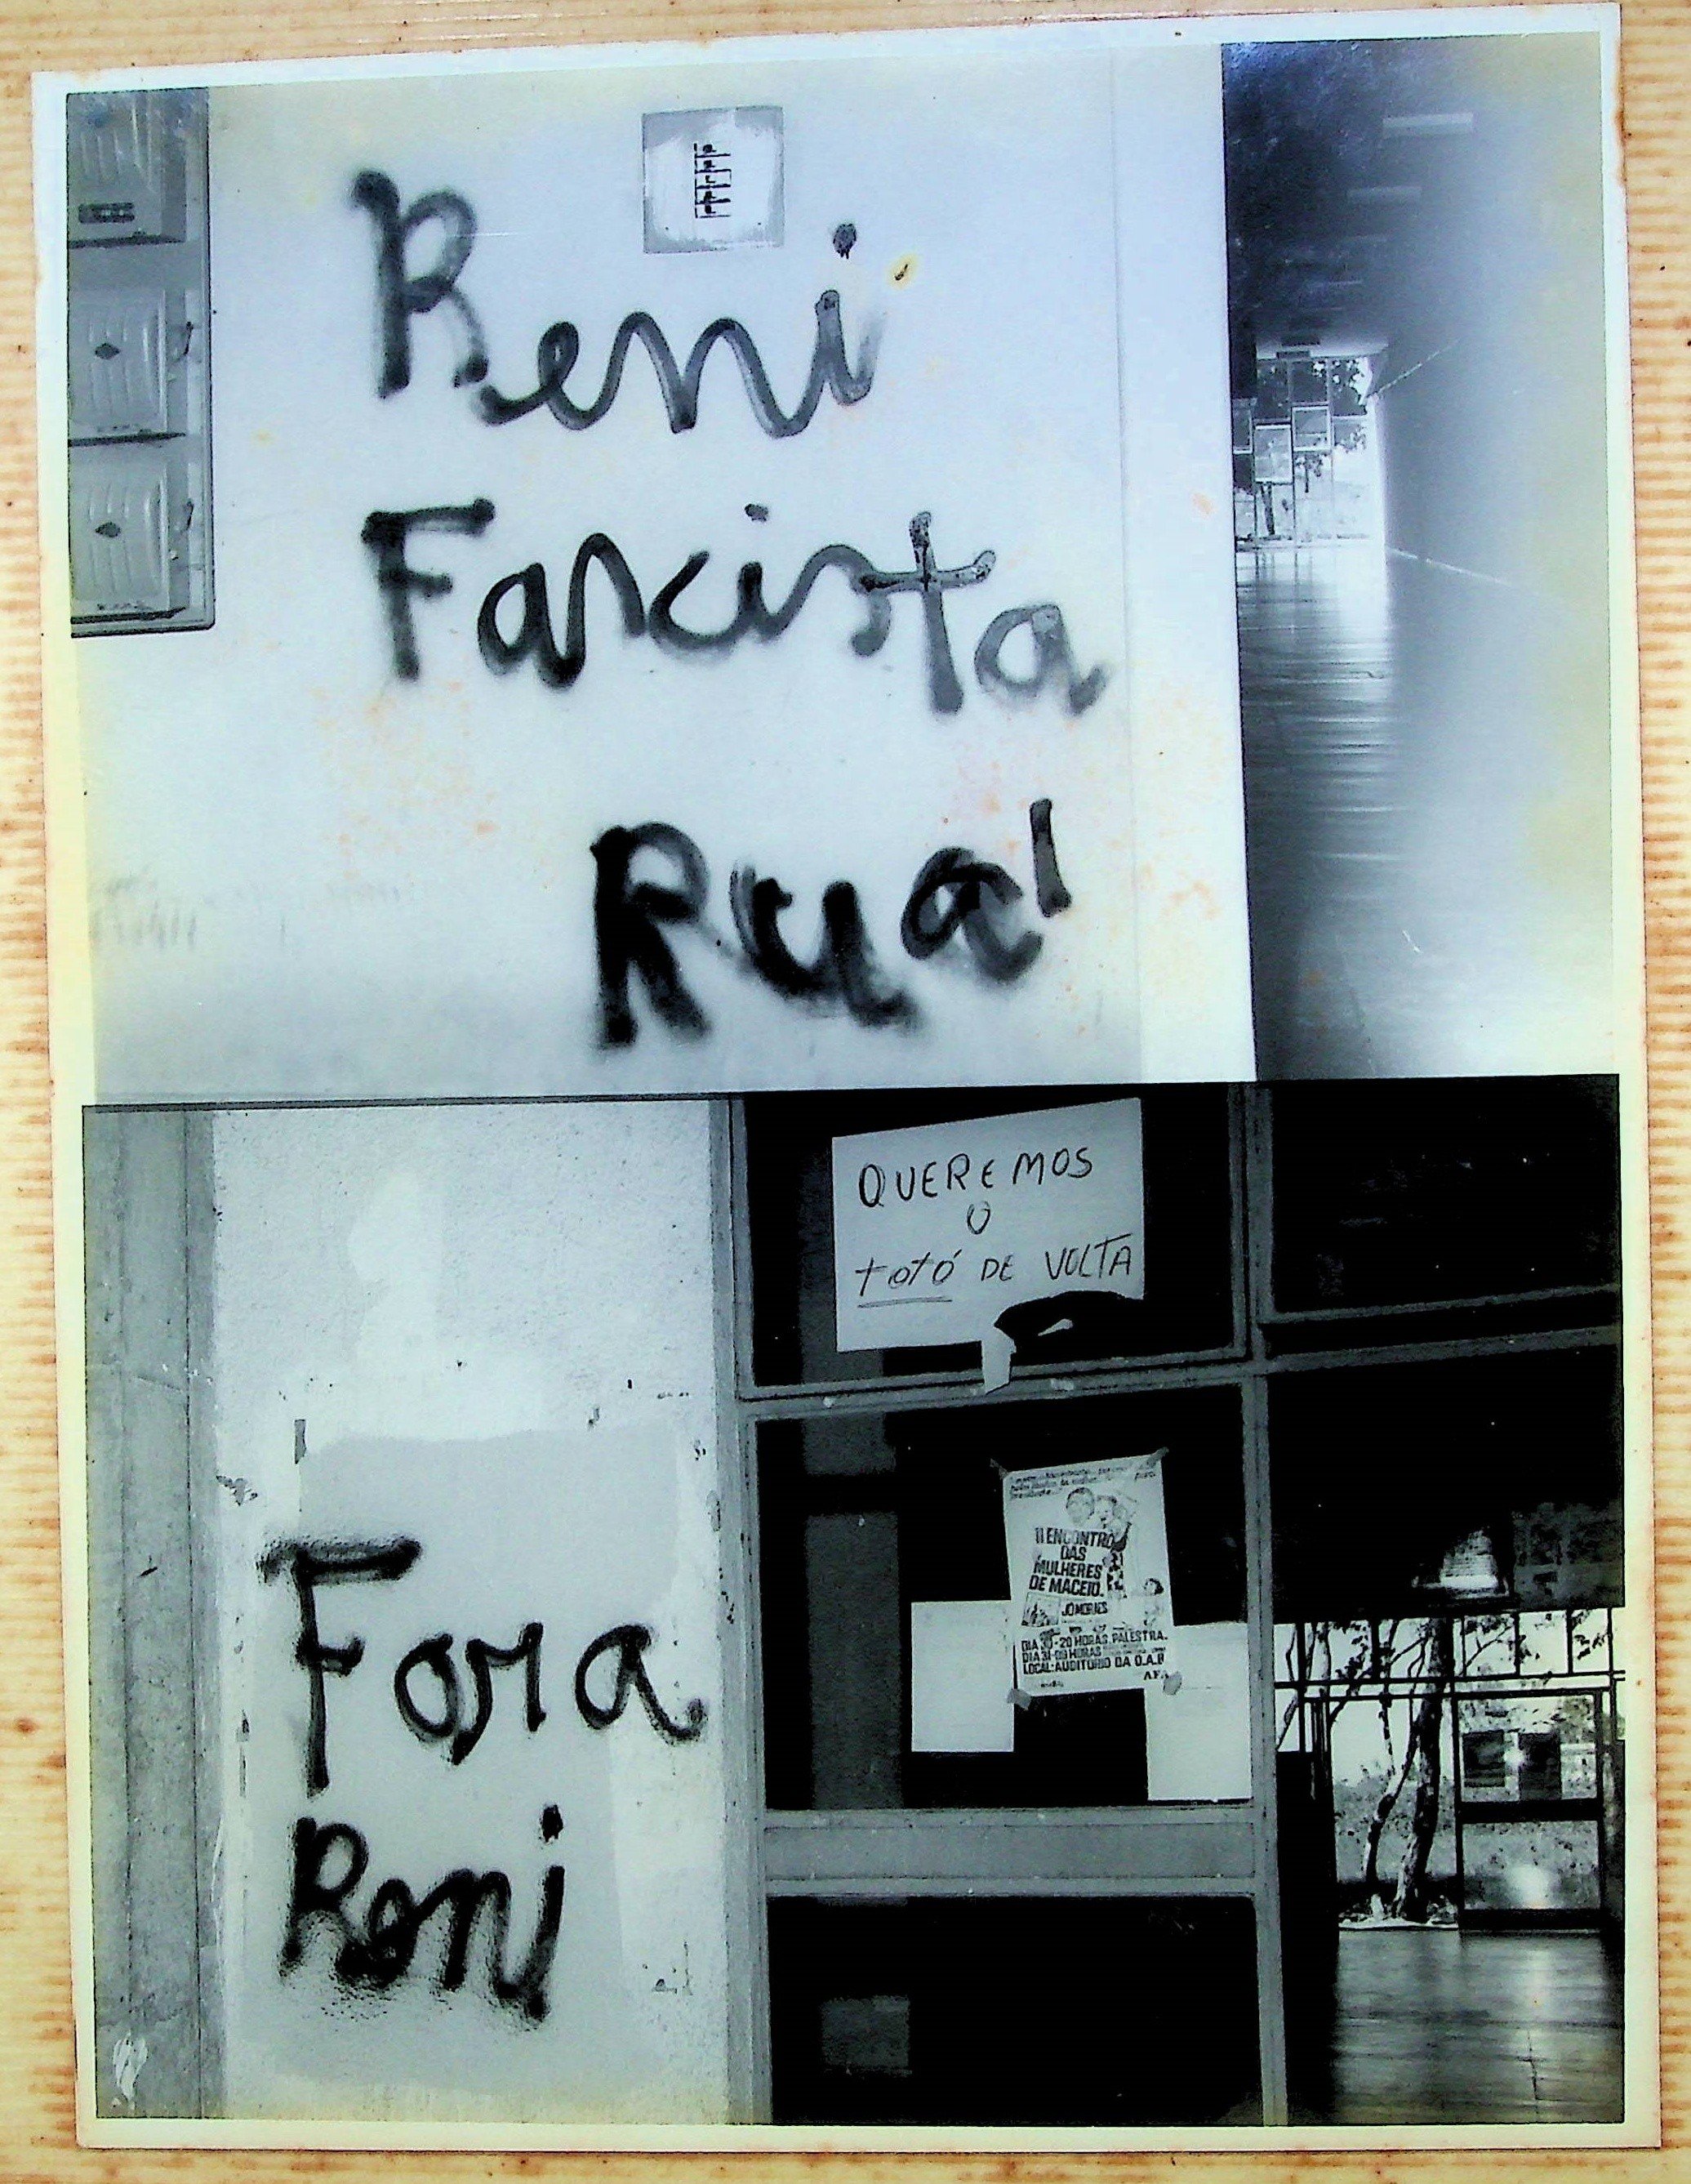 Reni
Fascista
Rua!
QUEREMOS
O
totó DE VOLTA
II ENCONTRO
DAS
MULHERES
DE MACEIO.
DIA 30-20 HORAS PALESTRA.
DIA 31-09 HORAS
LOCAL-AUDITORIO DA O.A.B
Fora
Reni